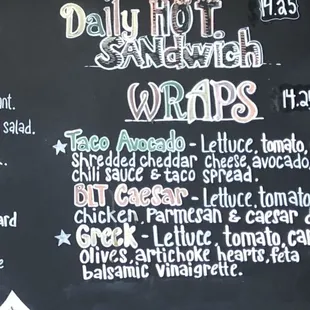 Daily HOT 14.25
SANDWICH
WRAPS
salad.
★Taco Avocado - Lettuce, tomato,
Shredded cheddar cheese, avocado,
chili sauce & taco spread.
BLT Caesar - Lettuce, tomato
chicken, Parmesan & caesar
★Greek - Lettuce, tomato,
olives, artichoke hearts, feta
balsamic vinaigrette.